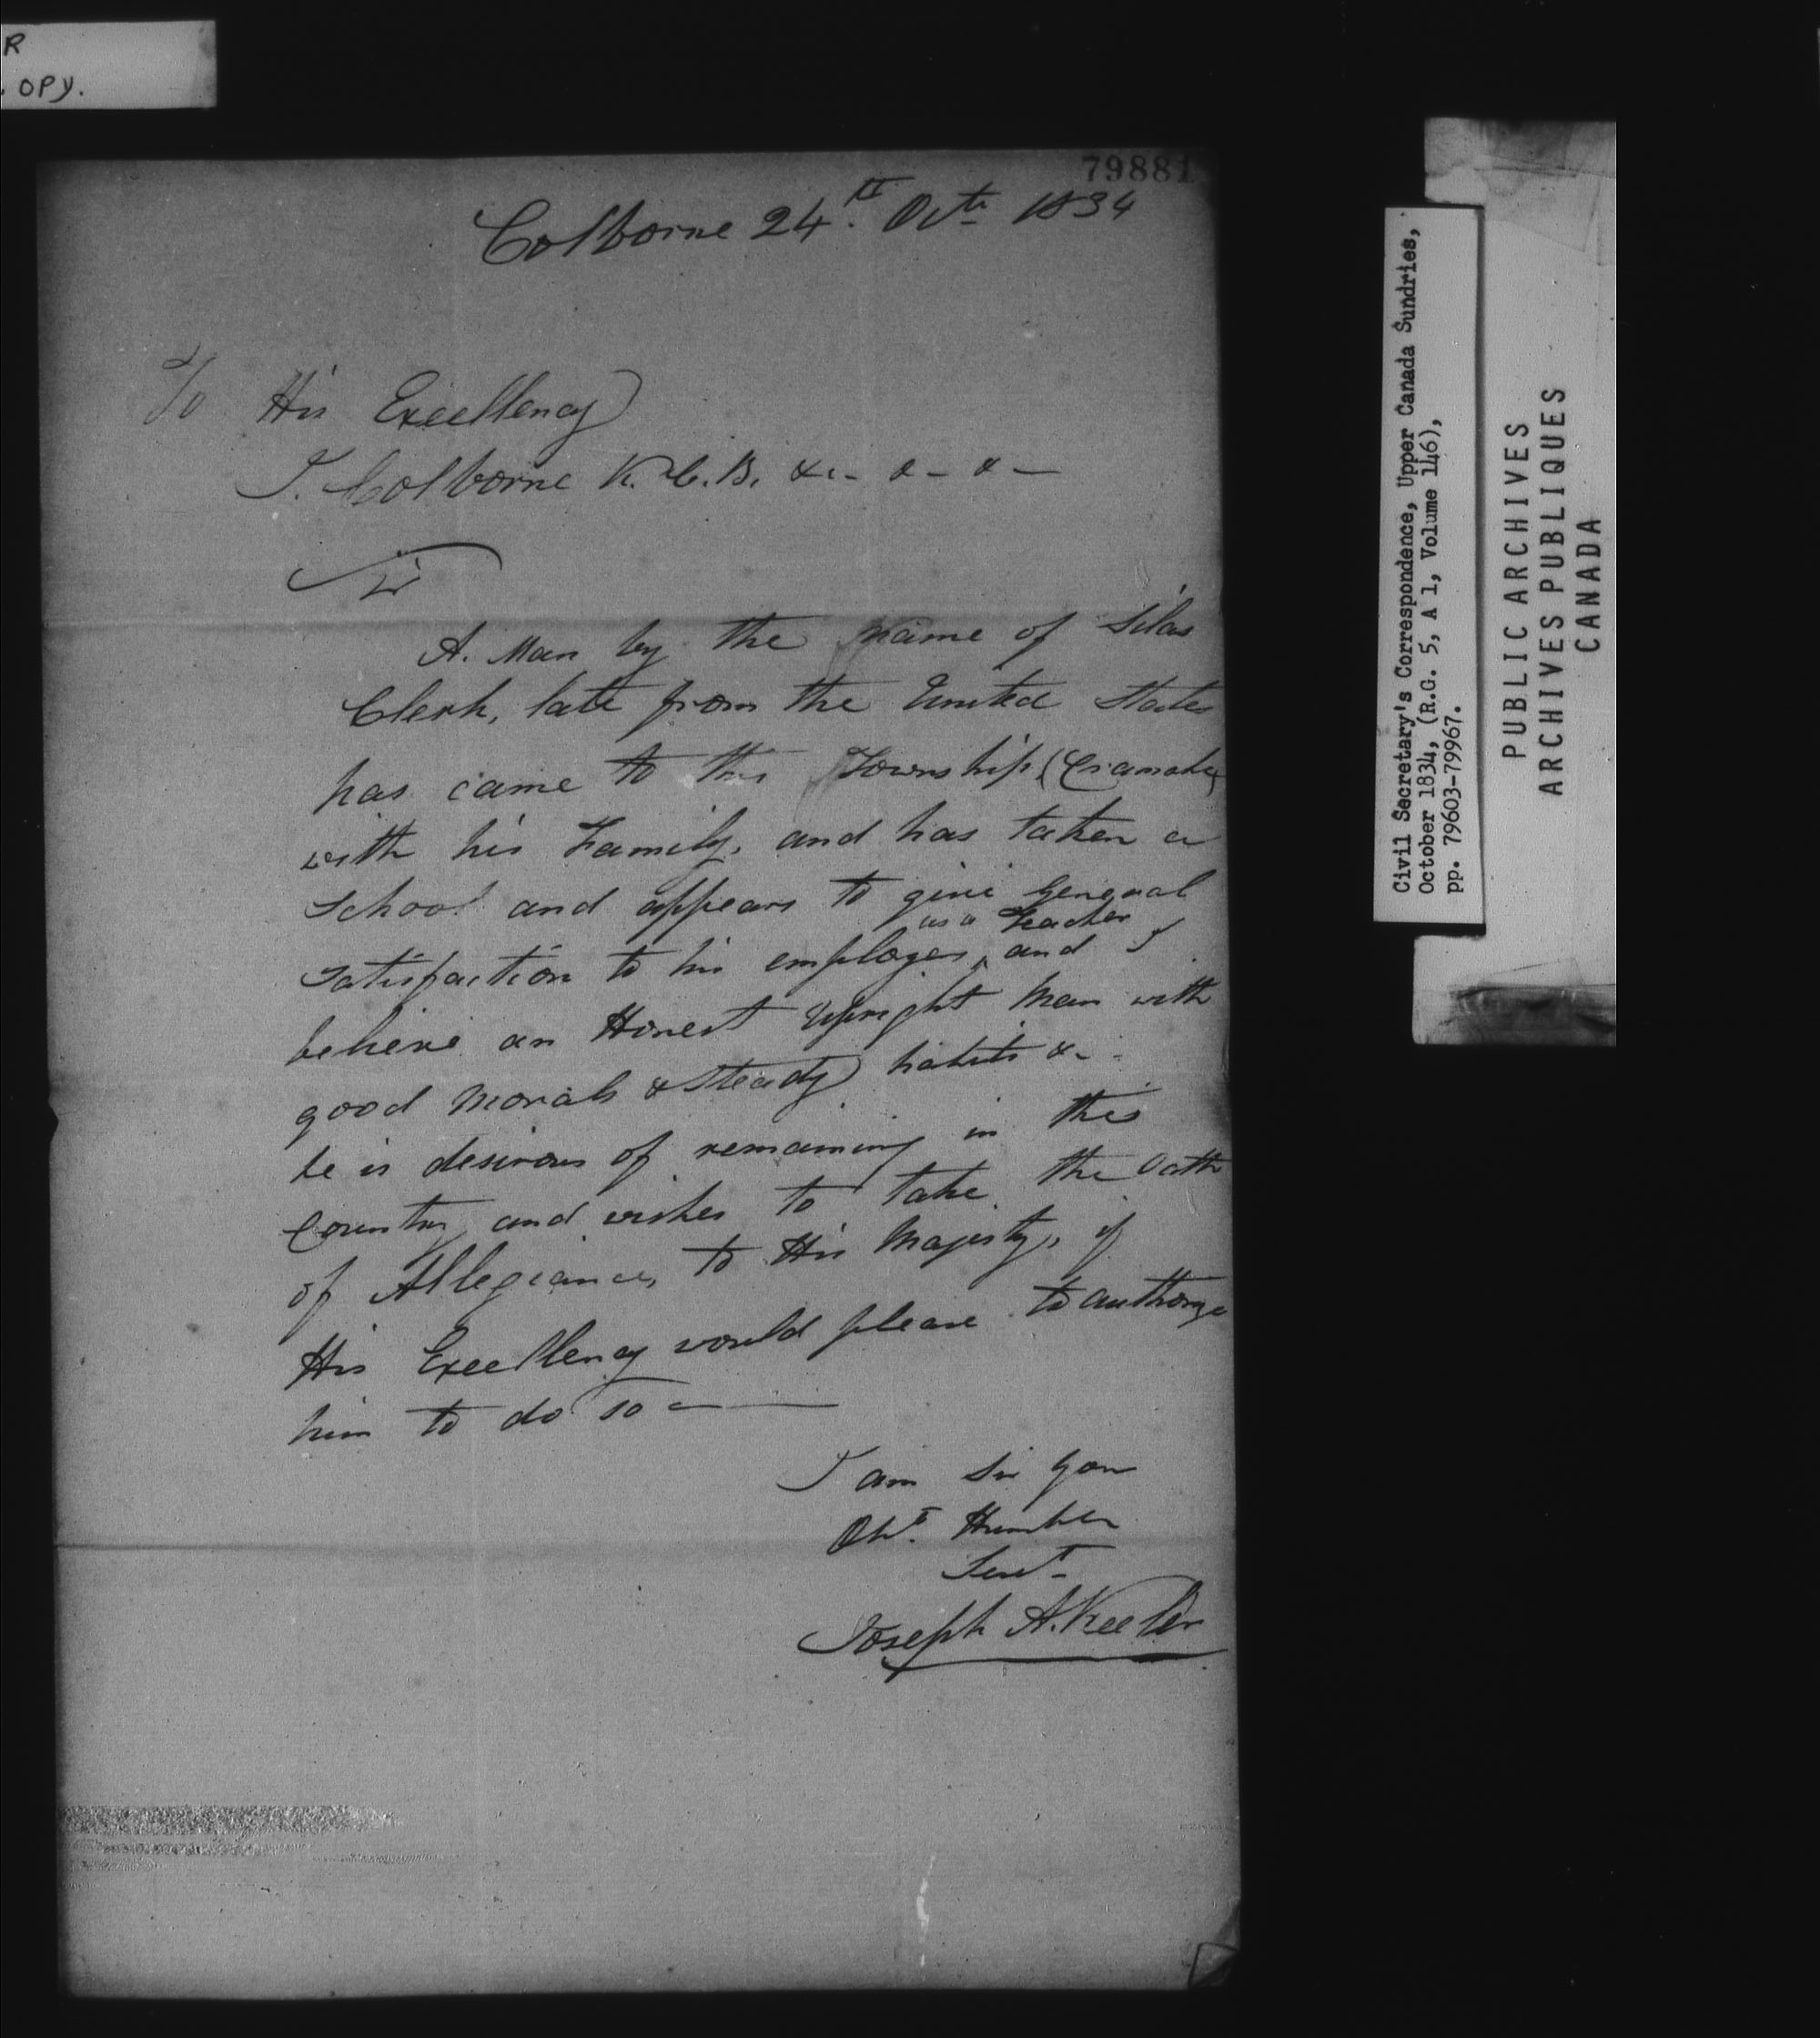 R
OPY.
79881
Colborne 24th Octr 1834
To His Excellency
J. Colborne K.C.B. &c- &- &-
Sir
A. Man by the Name of Silas
Clerk, late from the United States
has came to this Township (Cramahe)
with his Family, and has taken a
School and appears to give General
as a Teacher
satisfaction to his employers, and I
believe an Honest Upright Man with
good Morals & Steady habits &-
he is desirous of remaining in this
Country and wishes to take the Oath
of Allegiance, to His Majesty, if
His Excellency would please to authorize
him to do so-
I am Sir your
Obt. Humble
Servt-
Joseph A. Keeler
Civil Secretary's Correspondence, Upper Canada Sundries,
October 1834, (R.G. 5, A 1, Volume 146),
pp. 79603-79967.
PUBLIC ARCHIVES
ARCHIVES PUBLIQUES
CANADA